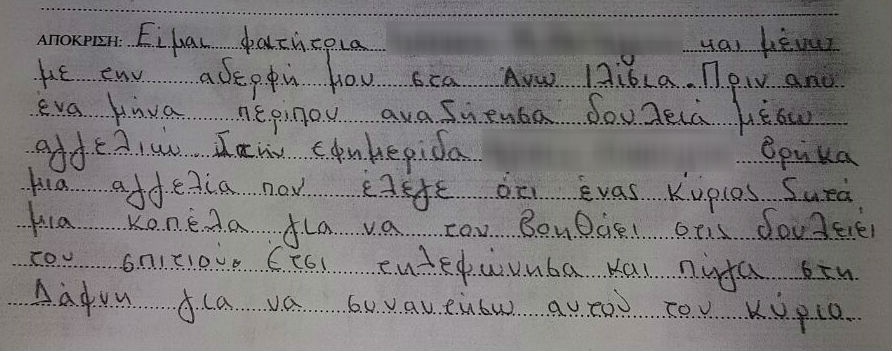 ΑΠΟΚΡΙΣΗ: Είμαι φοιτήτρια και μένω
με την αδερφή μου στα Άνω Ιλίσια. Πριν από
ένα μήνα περίπου αναζήτησα δουλειά μέσω
αγγελιών. Στην εφημερίδα βρήκα
μια αγγελία που έλεγε ότι ένας κύριος ζητά
μια κοπέλα για να τον βοηθάει στις δουλειές
του σπιτιού. Έτσι τηλεφώνησα και πήγα στη
Δάφνη για να συναντήσω αυτού του κύριο